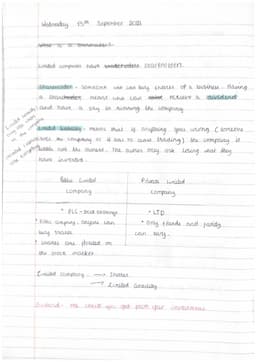 Wednesday 15th September 2021
What is a shareholder?
Limited companies have shareholders.
Shareholder - Someone who can buy shares of a business. Having
a shareholder means you can receive a dividend
and have a say in running the company.
Limited liability - means that if anything goes wrong (someone
sues the company or it has to cease trading) the company is
liable not the owners. The owners only risk losing what they
have invested.
Public Limited company
Private Limited company
• PLC - stock exchange
• Public company, anyone can
buy shares
• Shares are floated on
the stock market
• LTD
• Only friends and family
can buy.
Limited company → Shares
→ Limited liability
Dividend - The
you get from your investment